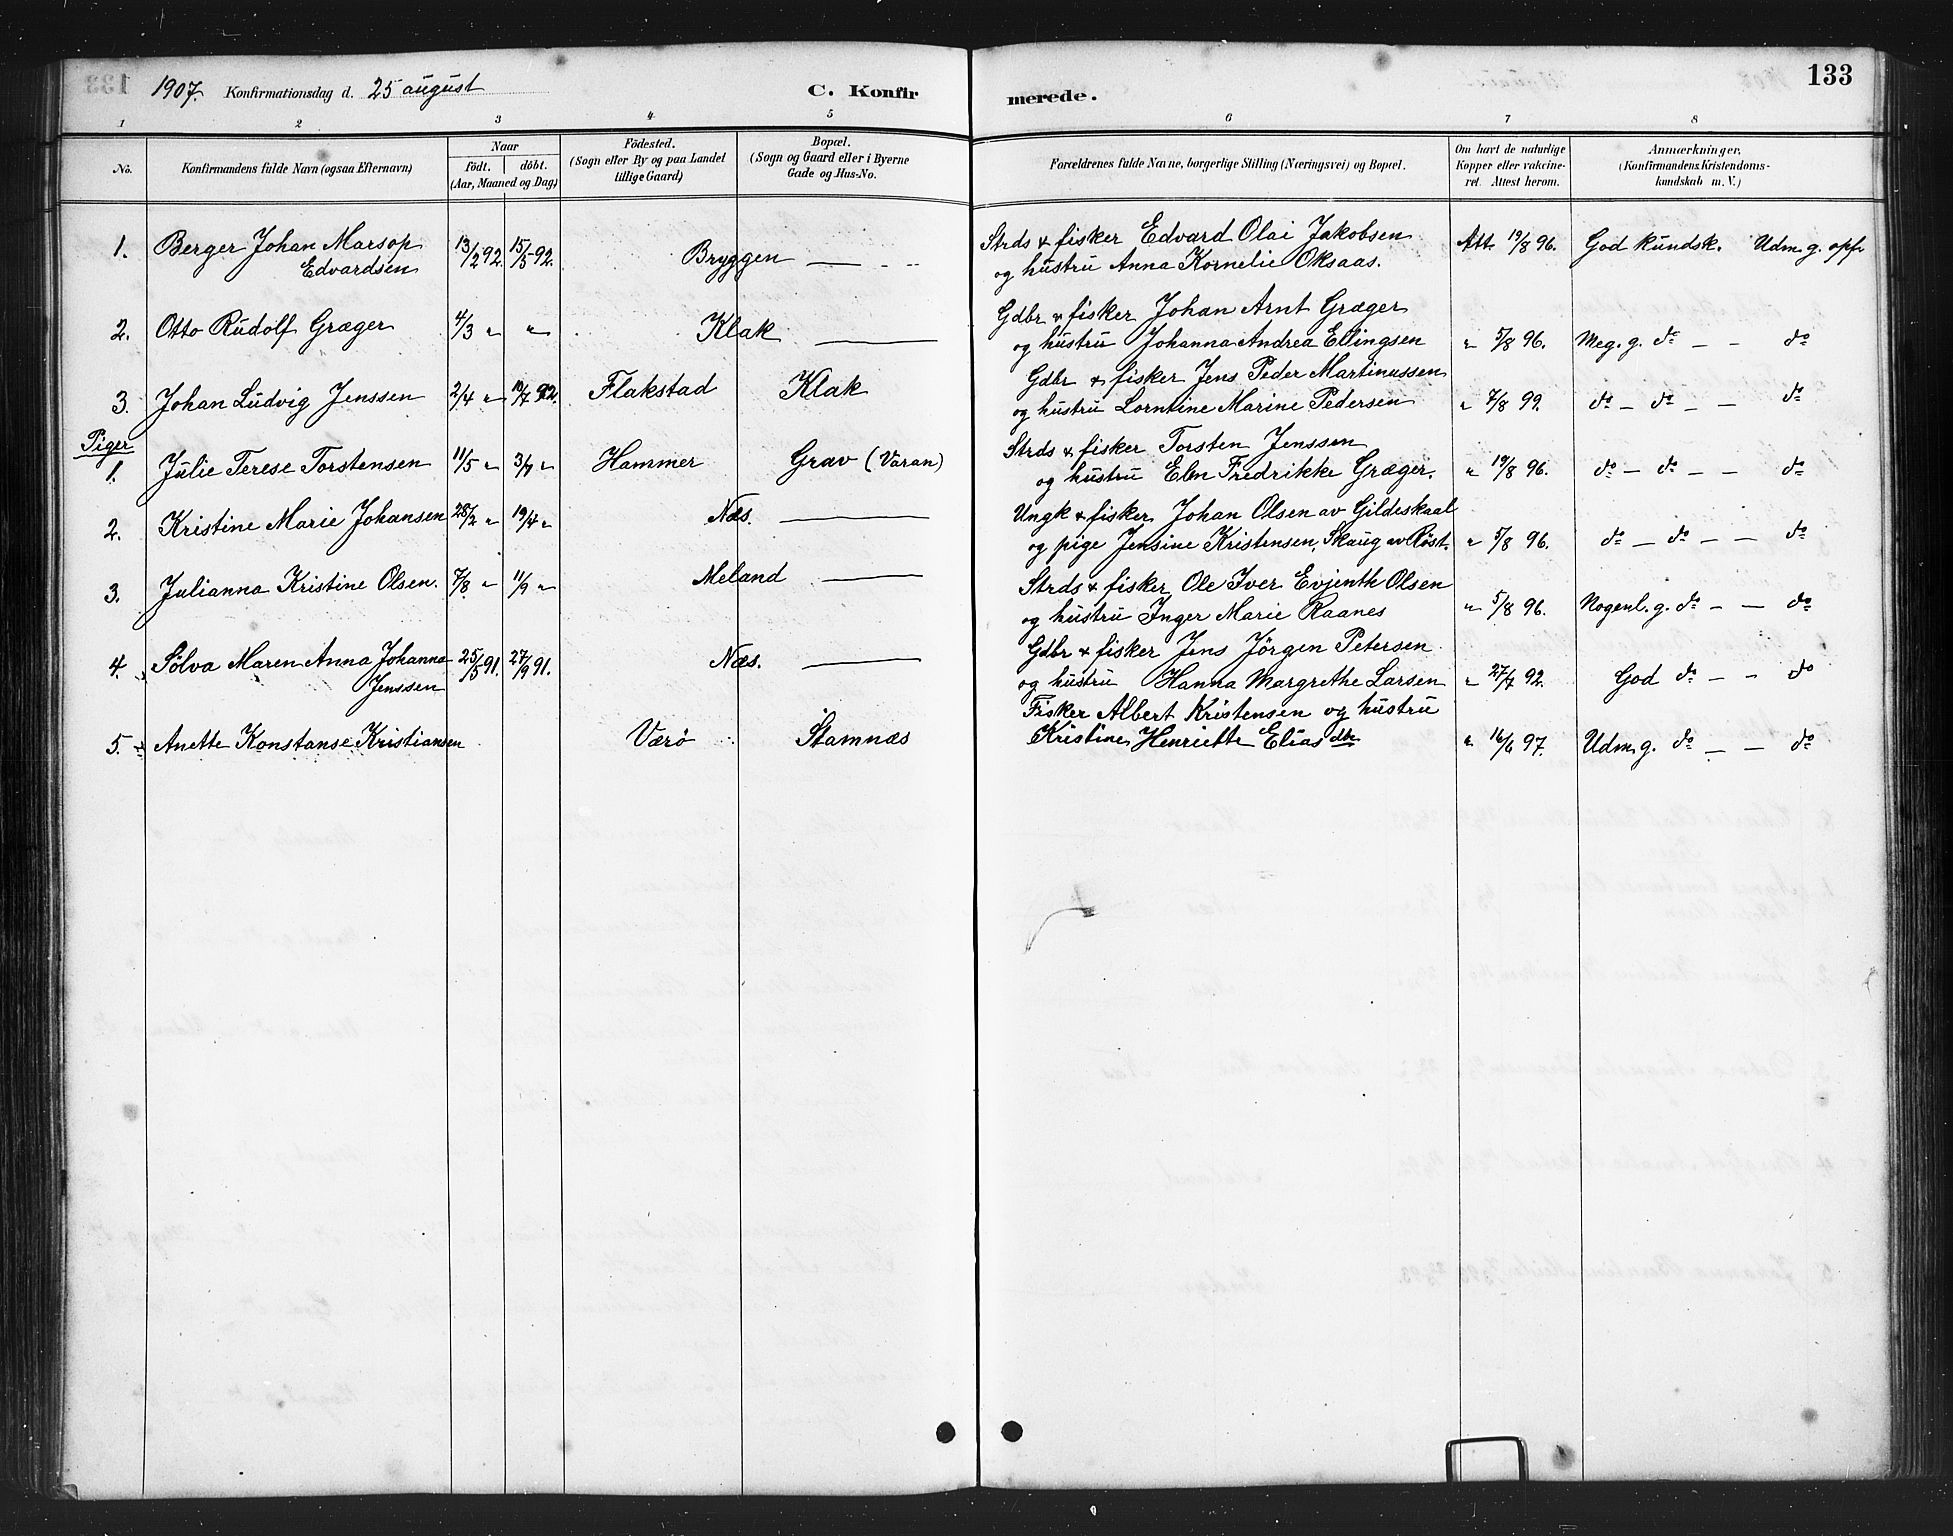 1907. Konfirmationsdag d. 25 august C. Konfirmerede. 133
1 2 3 4 5 6 7 8
No. Konfirmandens fulde Navn (ogsaa Efternavn) Naar født. døbt. (Aar, Maaned og Dag) Fødested. (Sogn eller By og paa Landet tillige Gaard) Bopæl. (Sogn og Gaard eller i Byerne Gade og Hus-No. Forældrenes fulde Navne, borgerlige Stilling (Næringsvei) og Bopæl. Om havt de naturlige Kopper eller vakcineret. Attest herom. Anmærkninger, (Konfirmandens Kristendomskundskab m. V.)
1. Berger Johan Marsop 13/2 92. 15/5 92. Bryggen — Strds & fisker Edvard Olai Jakobsen Att. 19/8 96. God kundsk. Udm. g. opf.
Edvardsen og hustru Anna Kornelie Oksaas.
2. Otto Rudolf Græger 4/3 " " Klak — Gdbr & fisker Johan Arnt Græger
og hustru Johanna Andrea Ellingsen " 5/8 96. Meg. g. do — — do
3. Johan Ludvig Jenssen 2/4 " 17/7 92. Flakstad Klak Gdbr & fisker Jens Peder Martinussen
og hustru Lorntine Marine Pedersen " 7/8 99. do — do — — do
Piger
1. Julie Terese Torstensen 11/5 " 3/7 " Hammer Grav (Varan) Strds & fisker Torsten Jenssen
og hustru Elen Fredrikke Græger. " 19/8 96. do — do — — do
2. Kristine Marie Johansen 28/2 " 19/4 " Næs. — Ungk & fisker Johan Olsen av Gildeskaal
og pige Jensine Kristensen, Skaug av Røst. " 5/8 96. do — do — — do
3. Julianna Kristine Olsen. 7/8 " 11/9 " Meland — Strds & fisker Ole Iver Evjenth Olsen
og hustru Inger Marie Raanes " 5/8 96. Nogenl. g. do — — do
4. Sölva Maren Anna Johanna 25/5 91. 27/9 91. Næs. — Gdbr & fisker Jens Jörgen Petersen
Jenssen og hustru Hanna Margrethe Larsen " 27/7 92. God do — — do
5. Anette Konstanse Kristiansen Værö Stamnæs Fisker Albert Kristensen og hustru
Kristine Henriette Elias dtr " 16/6 97. Udm. g. do — — do